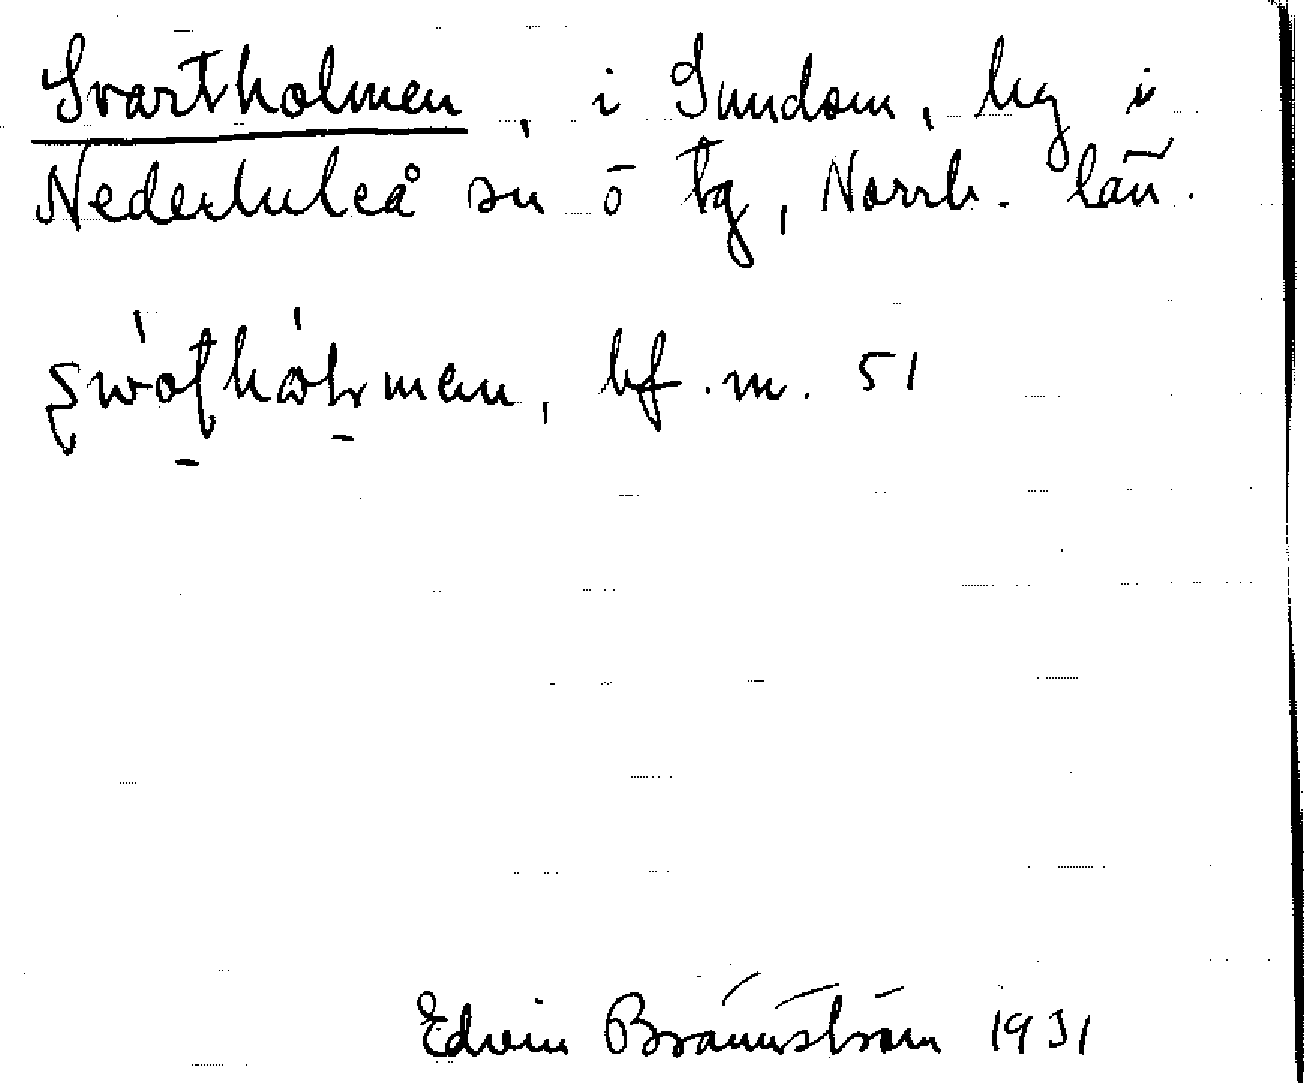 Svartholmen, i Sundom, by i
Nederluleå sn ö tg, Norrb. län.
bf. m. 51
Edvin Brännström 1931